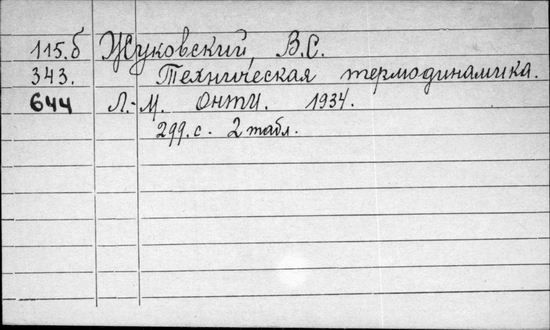 115.б Жуковский, В.С.
343. Техническая термодинамика.
644 Л.-М. ОНТИ. 1934.
299.с. 2 табл.